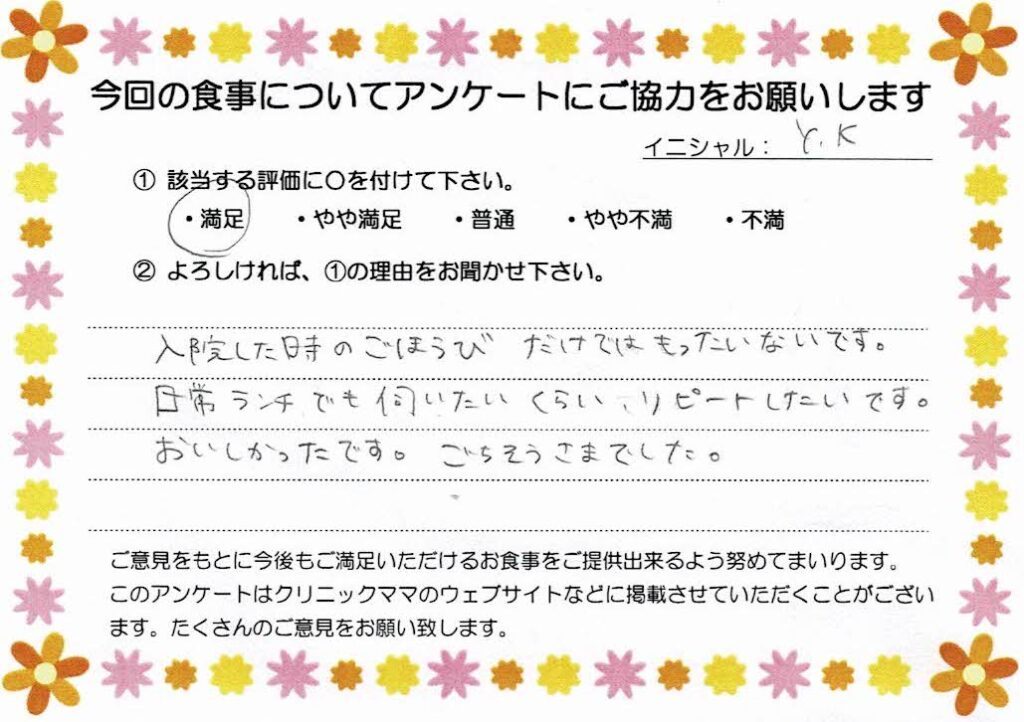 今回の食事についてアンケートにご協力をお願いします
イニシャル： Y.K
① 該当する評価に〇を付けて下さい。
・満足 ・やや満足 ・普通 ・やや不満 ・不満
② よろしければ、①の理由をお聞かせ下さい。
入院した時のごほうび だけではもったいないです。
日常ランチでも伺いたいくらい、リピートしたいです。
おいしかったです。ごちそうさまでした。
ご意見をもとに今後もご満足いただけるお食事をご提供出来るよう努めてまいります。
このアンケートはクリニックママのウェブサイトなどに掲載させていただくことがござい
ます。たくさんのご意見をお願い致します。